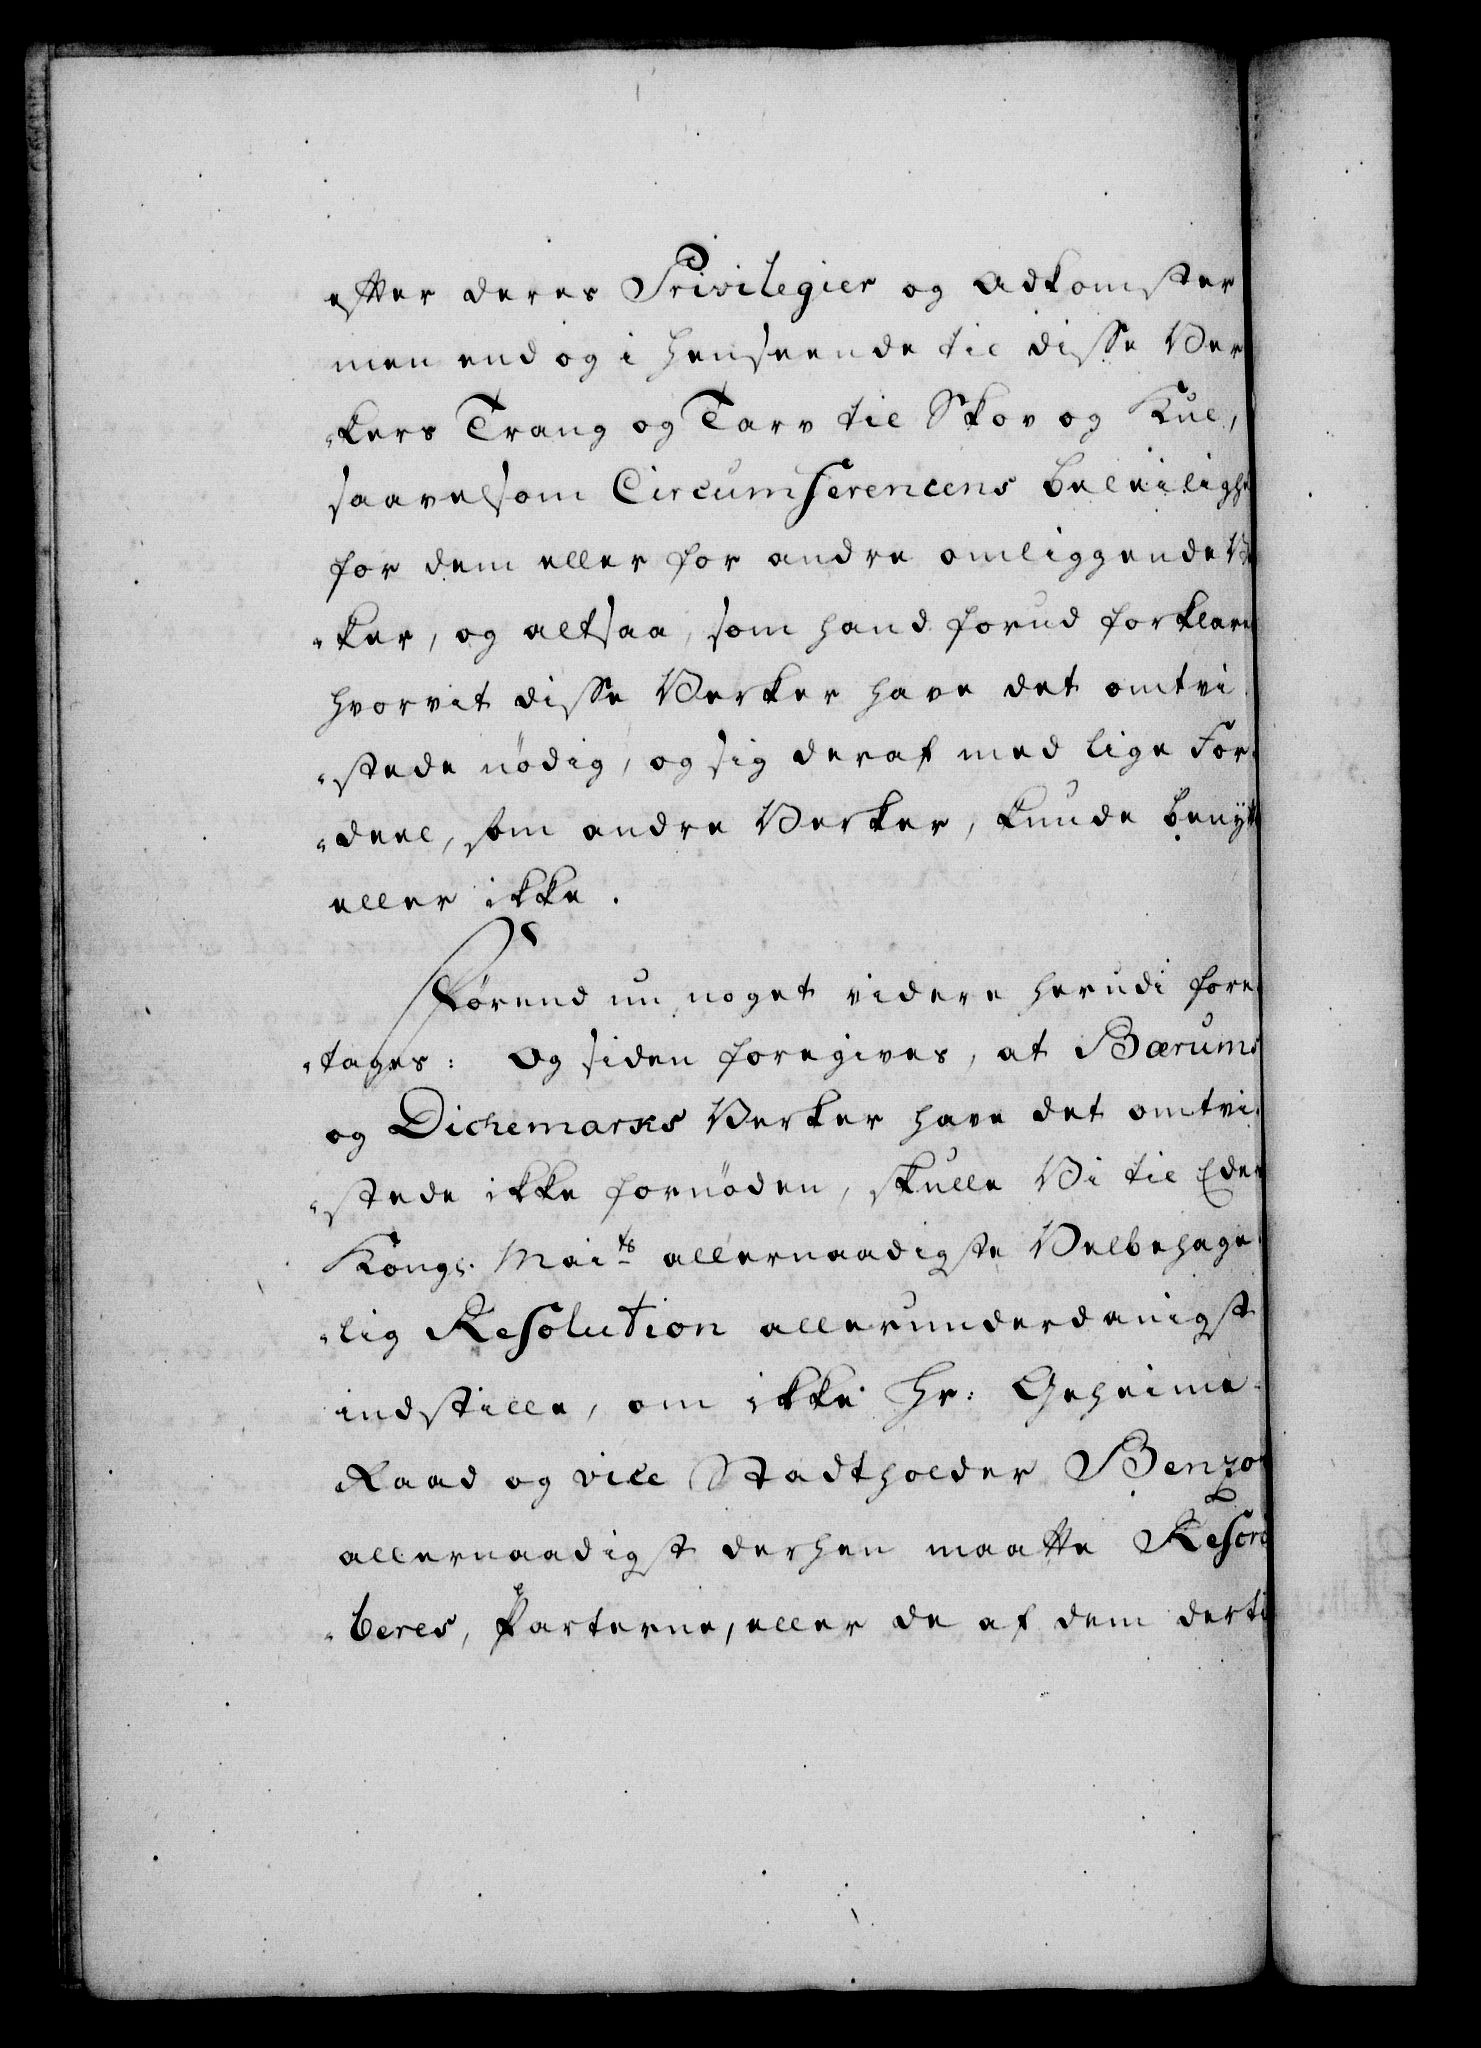 efter deres Privilegier og Adkomster
men endog i henseende til disse Ver
„kers Trang og Tarv til Skov og Kul,
saavelsom Circumferencens beleiligh
for dem eller for andre omliggende Ve
„ker, og altsaa, som hand forud forklare
hvorvit disse Verker have det omtvi
„stede nödig, og sig deraf med lige For„
„deel, som andre Verker, kunde benytt
eller ikke.
Förend nu noget videre herudi fore„
„tages: Og siden foregives, at Bærums
og Dichemarks Verker have det omtvi„
„stede ikke fornöden, skulle Vi til Eders
Kongl. Maits allernaadigste Velbehage„
„lig Resolution allerunderdanigst
indstille, om ikke Hr: Geheime„
Raad og vice Stadtholder Benzon
allernaadigst derhen maatte Rescri
„beres, Parterne, eller de af dem derti